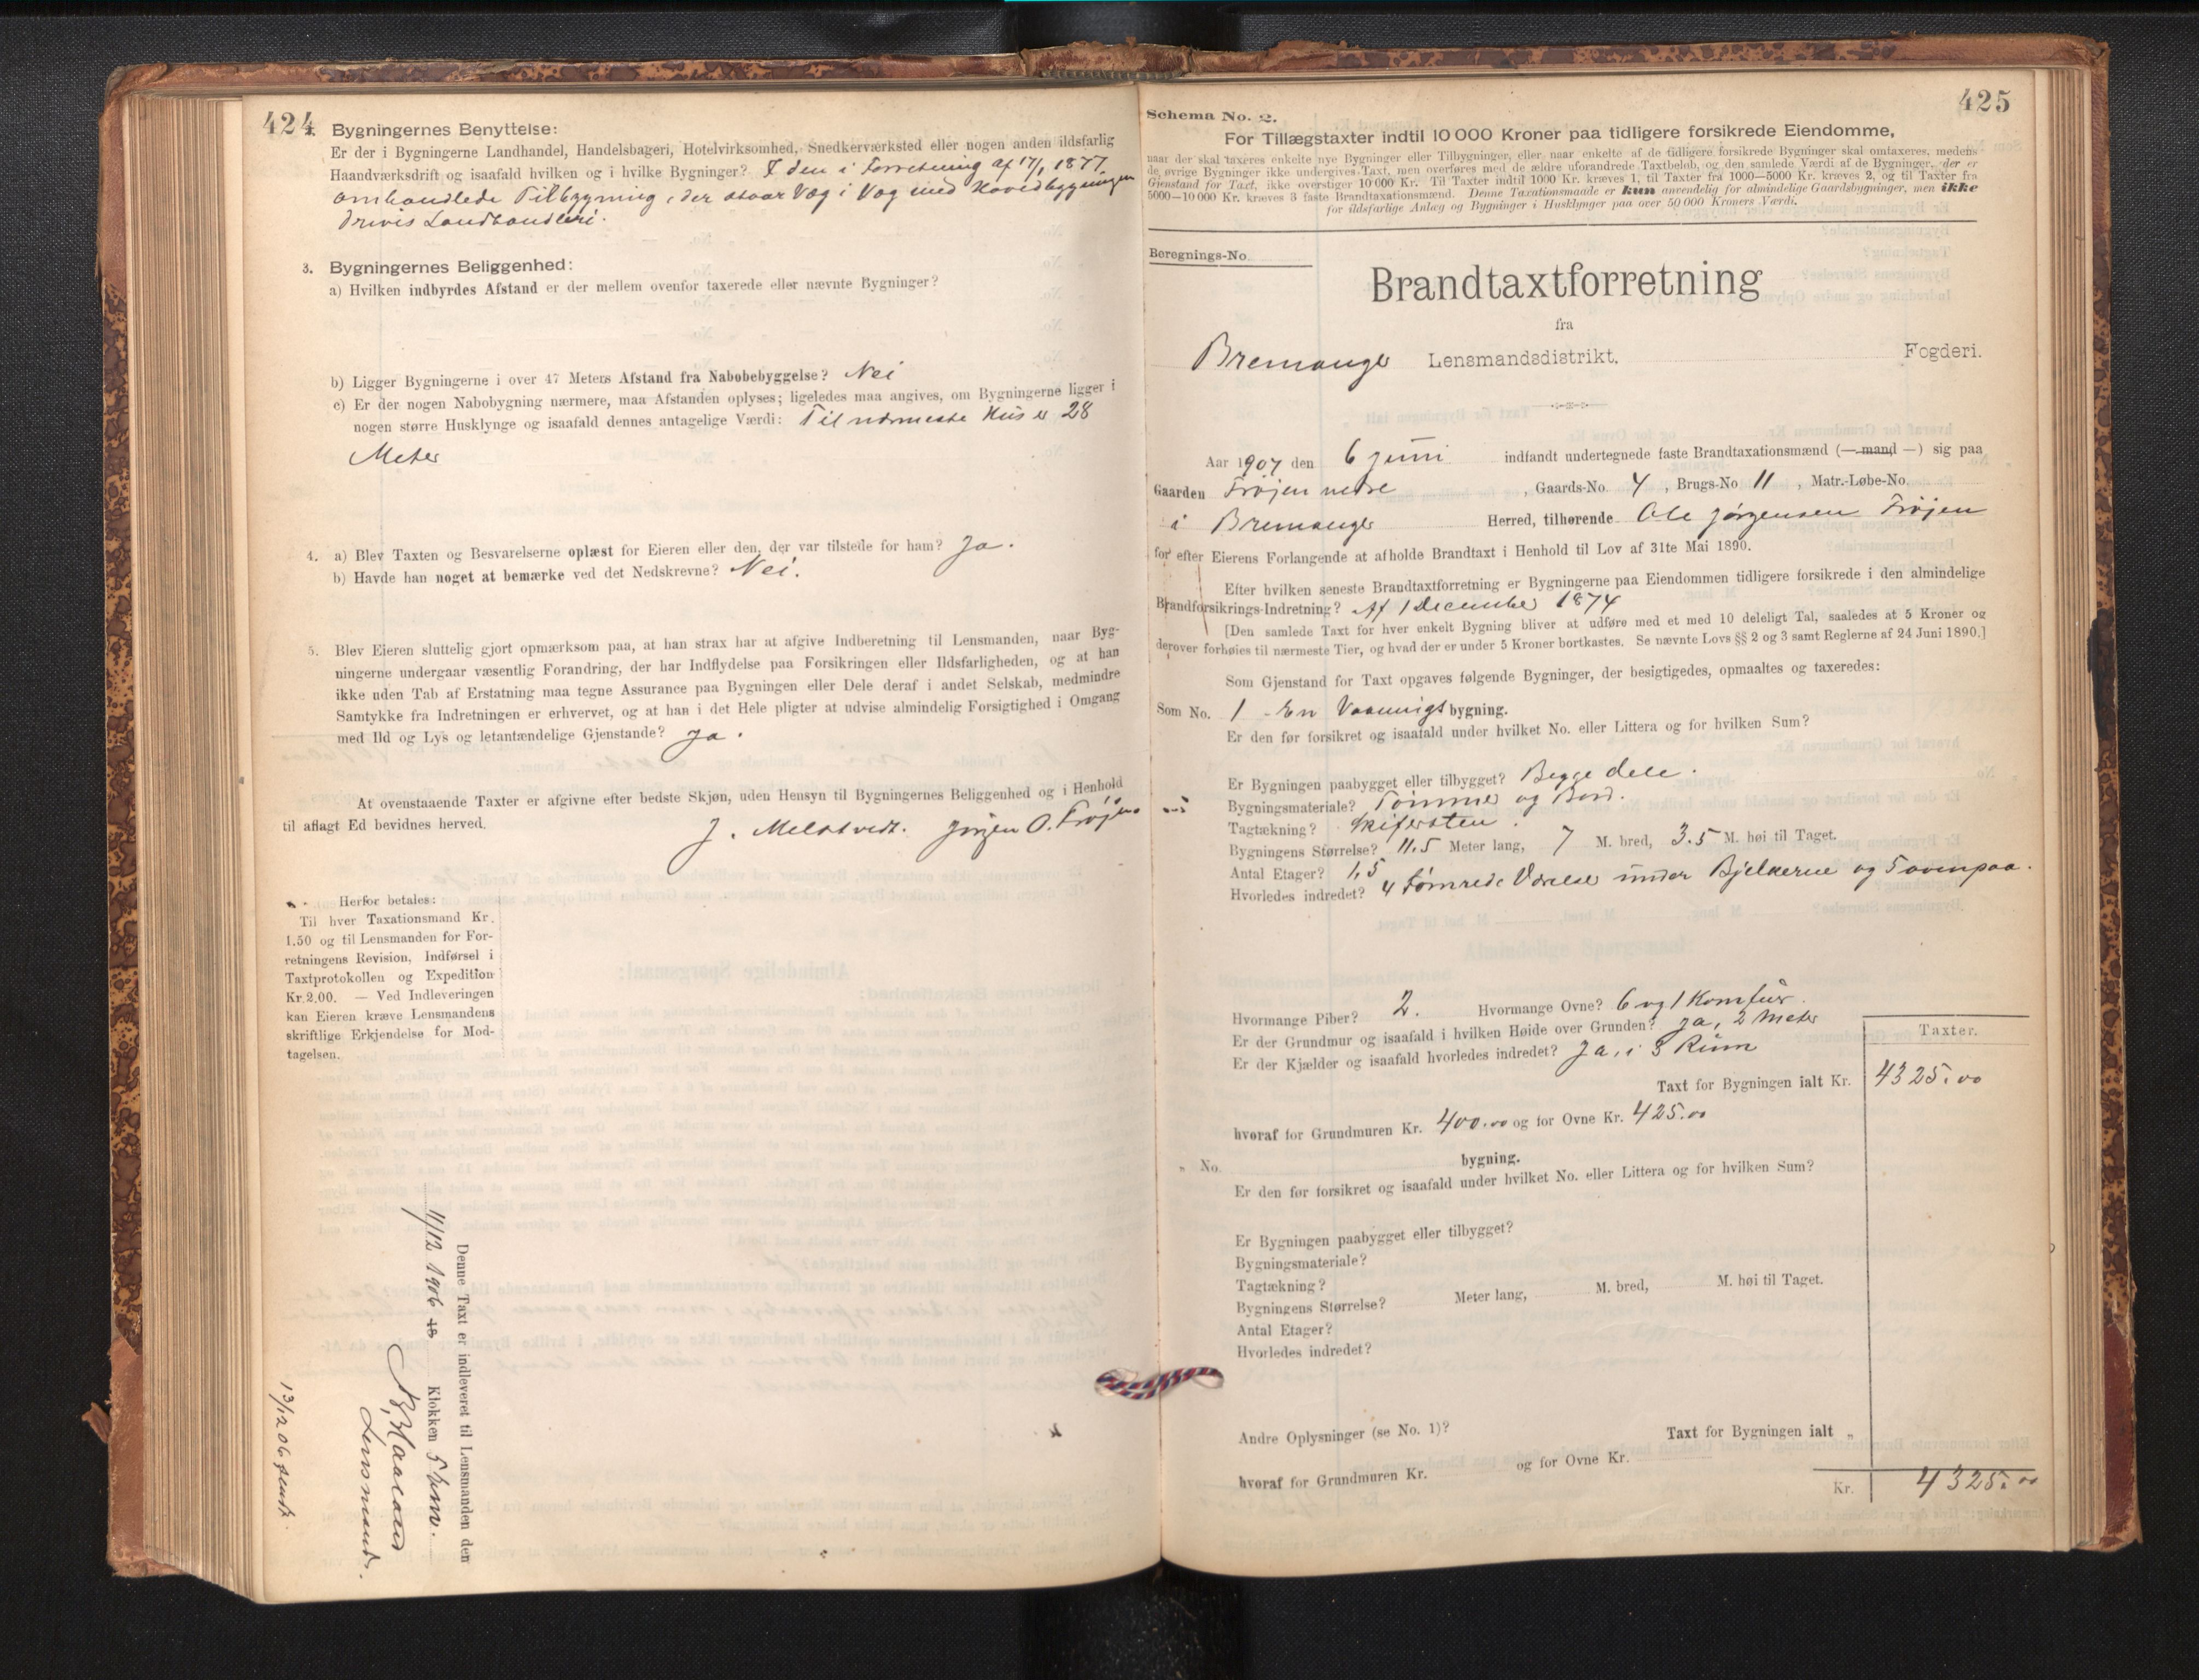 424
2. Bygningernes Benyttelse:
Er der i Bygningerne Landhandel, Handelsbageri, Hotelvirksomhed, Snedkerværksted eller nogen anden ildsfarlig
Haandværksdrift og isaafald hvilken og i hvilke Bygninger? I den i Forretning af 17/1 1877
omhandlede Tilbygning, der staar Væg i Væg med Hovedbygningen
drives Landhandleri.
3. Bygningernes Beliggenhed:
a) Hvilken indbyrdes Afstand er der mellem ovenfor taxerede eller nævnte Bygninger?
b) Ligger Bygningerne i over 47 Meters Afstand fra Nabobebyggelse? Nei
c) Er der nogen Nabobygning nærmere, maa Afstanden oplyses; ligeledes maa angives, om Bygningerne ligger i
nogen større Husklynge og isaafald dennes antagelige Værdi: Til nærmeste Hus er 28
Meter
4. a) Blev Taxten og Besvarelserne oplæst for Eieren eller den, der var tilstede for ham? Ja.
b) Havde han noget at bemærke ved det Nedskrevne? Nei.
5. Blev Eieren sluttelig gjort opmærksom paa, at han strax har at afgive Indberetning til Lensmanden, naar Byg-
ningerne undergaar væsentlig Forandring, der har Indflydelse paa Forsikringen eller Ildsfarligheden, og at han
ikke uden Tab af Erstatning maa tegne Assurance paa Bygningen eller Dele deraf i andet Selskab, medmindre
Samtykke fra Indretningen er erhvervet, og at han i det Hele pligter at udvise almindelig Forsigtighed i Omgang
med Ild og Lys og letantændelige Gjenstande? Ja.
At ovenstaaende Taxter er afgivne efter bedste Skjøn, uden Hensyn til Bygningernes Beliggenhed og i Henhold
til aflagt Ed bevidnes herved.
J. Melstvedt. Jørgen O. Frøjen
Herfor betales:
Til hver Taxationsmand Kr.
1,50 og til Lensmanden for For-
retningens Revision, Indførsel i
Taxtprotokollen og Expedition
Kr. 2,00. — Ved Indleveringen
kan Eieren kræve Lensmandens
skriftlige Erkjendelse for Mod-
tagelsen.
Denne Taxt er indleveret til Lensmanden den
11/12 1906 18 Klokken 5 Em.
Lensmand.
13/12 06 sendt.
425
Schema No. 2.
For Tillægstaxter indtil 10 000 Kroner paa tidligere forsikrede Eiendomme,
naar der skal taxeres enkelte nye Bygninger eller Tilbygninger, eller naar enkelte af de tidligere forsikrede Bygninger skal omtaxeres, medens
de øvrige Bygninger ikke undergives Taxt, men overføres med de ældre uforandrede Taxtbeløb, og den samlede Værdi af de Bygninger, der er
Gjenstand for Taxt, ikke overstiger 10 000 Kr. Til Taxter indtil 1000 Kr. kræves 1, til Taxter fra 1000—5000 Kr. kræves 2, og til Taxter fra
5000—10 000 Kr. kræves 3 faste Brandtaxationsmænd. Denne Taxationsmaade er kun anvendelig for almindelige Gaardsbygninger, men ikke
for ildsfarlige Anlæg og Bygninger i Husklynger paa over 50 000 Kroners Værdi.
Beregnings-No.
Brandtaxtforretning
fra
Bremanger Lensmandsdistrikt, Fogderi.
Aar 1907 den 6 juni indfandt undertegnede faste Brandtaxationsmænd (— mand —) sig paa
Gaarden Frøjen nedre, Gaards-No. 4, Brugs-No 11, Matr.-Løbe-No.
i Bremanger Herred, tilhørende Ole Jørgensen Frøjen
for efter Eierens Forlangende at afholde Brandtaxt i Henhold til Lov af 31te Mai 1890.
Efter hvilken seneste Brandtaxtforretning er Bygningerne paa Eiendommen tidligere forsikrede i den almindelige
Brandforsikrings-Indretning? Af 1 December 1874
[Den samlede Taxt for hver enkelt Bygning bliver at udføre med et med 10 deleligt Tal, saaledes at 5 Kroner og
derover forhøies til nærmeste Tier, og hvad der er under 5 Kroner bortkastes. Se nævnte Lovs §§ 2 og 3 samt Reglerne af 24 Juni 1890.]
Som Gjenstand for Taxt opgaves følgende Bygninger, der besigtigedes, opmaaltes og taxeredes:
Som No. 1 - En Vaanings bygning.
Er den før forsikret og isaafald under hvilket No. eller Littera og for hvilken Sum?
Er Bygningen paabygget eller tilbygget? Begge dele.
Bygningsmateriale? Tømmer og Bord.
Tagtækning? Skifersten.
Bygningens Størrelse? 11.5 Meter lang, 7 M. bred, 3.5 M. høi til Taget.
Antal Etager? 1,5
Hvorledes indredet? 4 tømrede Værelser under Bjelkerne og 5 ovenpaa.
Hvormange Piber? 2. Hvormange Ovne? 6 og 1 Komfür.
Er der Grundmur og isaafald i hvilken Høide over Grunden? Ja, 2 Meter
Er der Kjælder og isaafald hvorledes indredet? Ja, i 3 Rum
Taxter.
Taxt for Bygningen ialt Kr. 4325.00
hvoraf for Grundmuren Kr. 400.00 og for Ovne Kr. 425.00
„ No. bygning.
Er den før forsikret og isaafald under hvilket No. eller Littera og for hvilken Sum?
Er Bygningen paabygget eller tilbygget?
Bygningsmateriale?
Tagtækning?
Bygningens Størrelse? Meter lang, M. bred, M. høi til Taget.
Antal Etager?
Hvorledes indredet?
Andre Oplysninger (se No. 1)? Taxt for Bygningen ialt „
hvoraf for Grundmuren Kr. og for Ovne Kr.
Kr. 4325.00